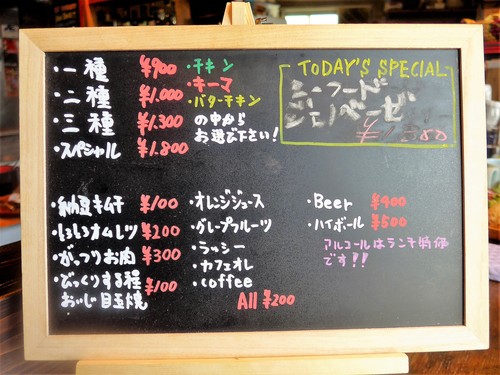 ・一種 ¥900
・二種 ¥1.000
・三種 ¥1.300
・スペシャル ¥1.800
・チキン
・キーマ
・バターチキン
の中から
お選び下さい!
TODAY'S SPECIAL
シーフード
・納豆キムチ ¥100
オムレツ ¥200
・がっつりお肉 ¥300
・びっくりする程
おいしい目玉焼 ¥100
・オレンジジュース
・グレープフルーツ
・ラッシー
・カフェオレ
・coffee
All ¥200
・Beer ¥400
・ハイボール ¥500
アルコールはランチ特価
です!!